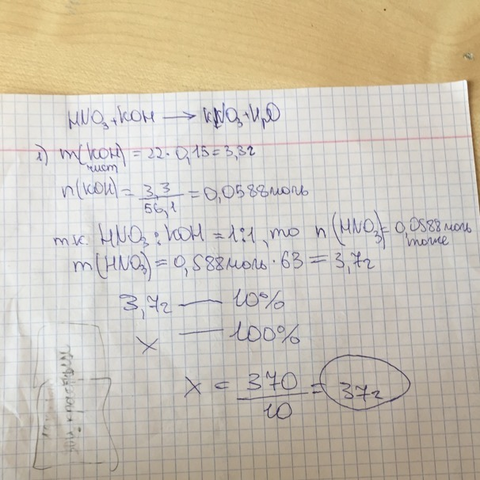 HNO₃ + KOH ⟶ KNO₃ + H₂O
1) m(KOH) = 22 · 0,15 = 3,3г
чист
n(KOH) = 3,3/56,1 = 0,0588моль
т.к. HNO₃ : KOH = 1:1, то n(HNO₃) = 0,0588моль
тоже
m(HNO₃) = 0,588моль · 63 = 3,7г
3,7г — 10%
x — 100%
x = 370/10 = 37г